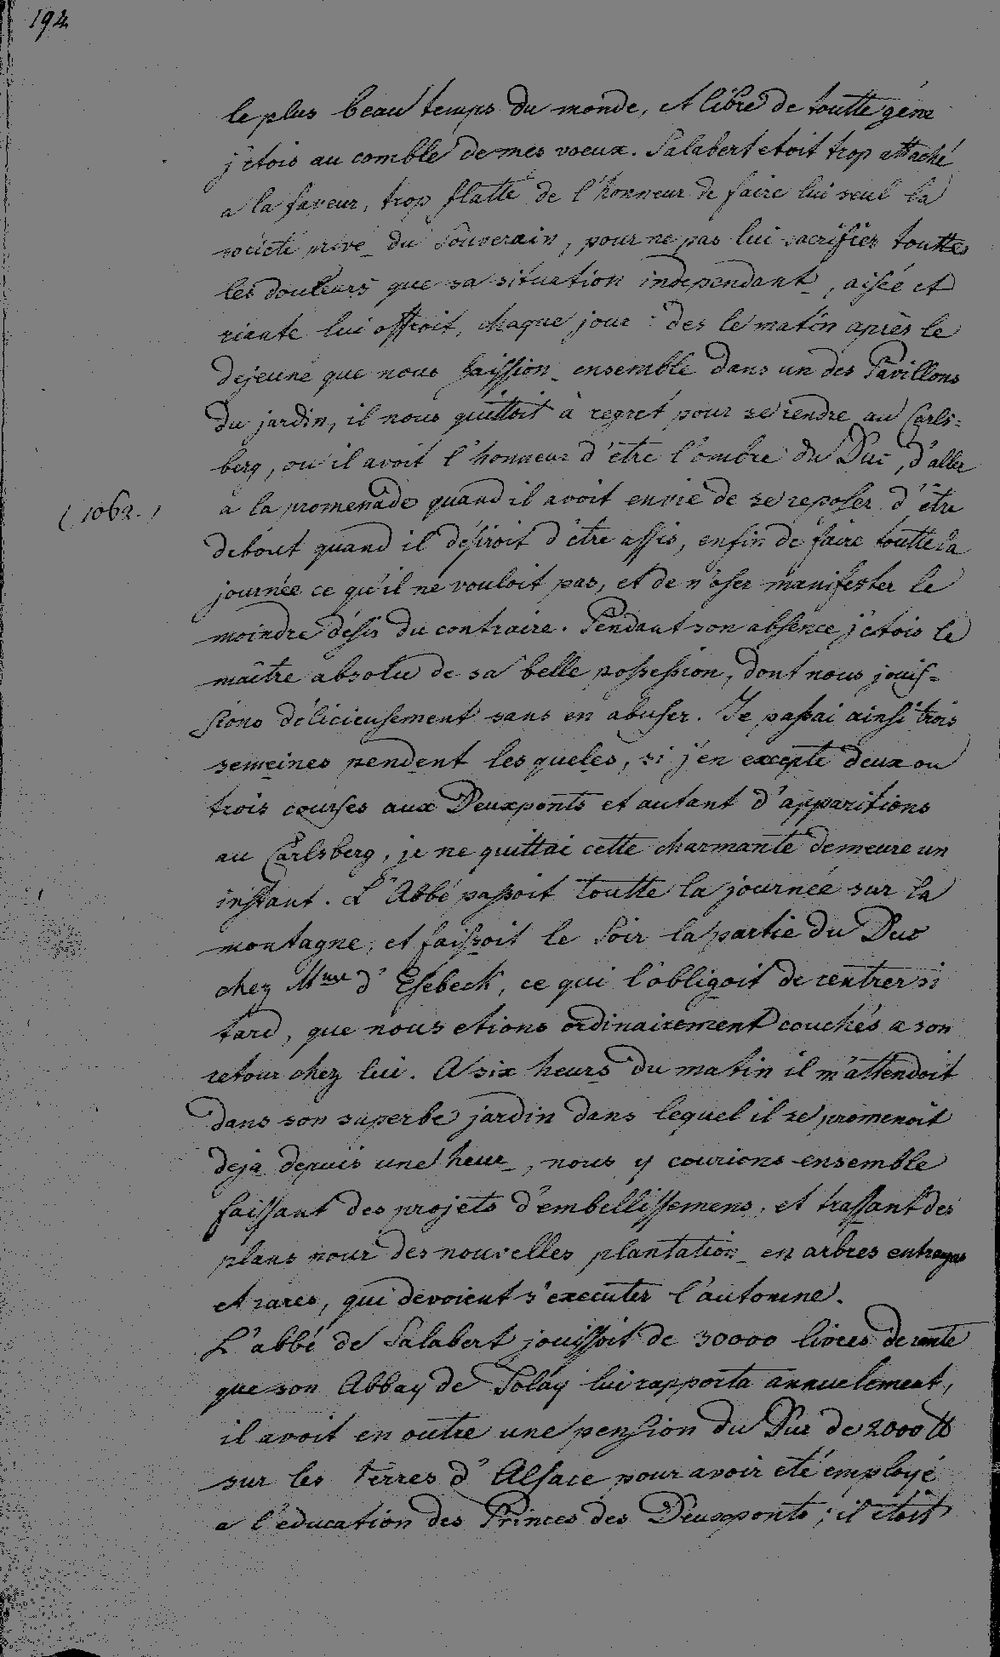 194
le plus beau temps du monde, et libre de toutte géne
j'etois au comble de mes voeux. Salabert etoit trop attaché
a la faveur, trop flatté de l'honneur de faire lui seul la
société privé du Souverain, pour ne pas lui sacrifier touttes
les douceurs que sa situation independant, aisée et
riante lui offroit, chaque jour : des le matin après le
dejeuné que nous faission ensemble dans un des Pavillons
du jardin, il nous quittoit à regret pour se rendre au Carls=
berg, ou il avoit l'honneur d'etre l'ombre du Duc, d'aller
a la promenade quand il avoit envie de se reposer d'être
(1062.)
debout quand il désiroit d'être assis, enfin de faire toutte la
journée ce qu'il ne vouloit pas, et de n'oser manifester le
moindre désir du contraire. Pendant son absence j'etois le
maître absolu de sa belle possession, dont nous jouis=
sions délicieusement sans en abuser. Je passai ainsi trois
semeines pendent les queles, si j'en excepte deux ou
trois courses aux Deuxponts et autant d'apparitions
au Carlsberg, je ne quittai cette charmante demeure un
instant. L'Abbé passoit toutte la journée sur la
montagne, et faissoit le Soir la partie du Duc
chez Mme d'Esebeck, ce qui l'obligoit de rentrer si
tard, que nous etions ordinairement couchés a son
retour chez lui. A six heurs du matin il m'attendoit
dans son superbe jardin dans lequel il se promenoit
deja depuis une heur, nous y courions ensemble
faissant des projets d'embellissemens, et trassant des
plans pour des nouvelles plantation en arbres
et rares, qui devoient s'executer l'automne.
L'abbé de Salabert jouissoit de 30000 livres de rente
que son Abbay de Tolay lui rapporta annuelement,
il avoit en outre une pension du Duc de 2000 ₶
sur les terres d'Alsace pour avoir eté employé
a l'education des Princes des Deuxponts ; il etoit